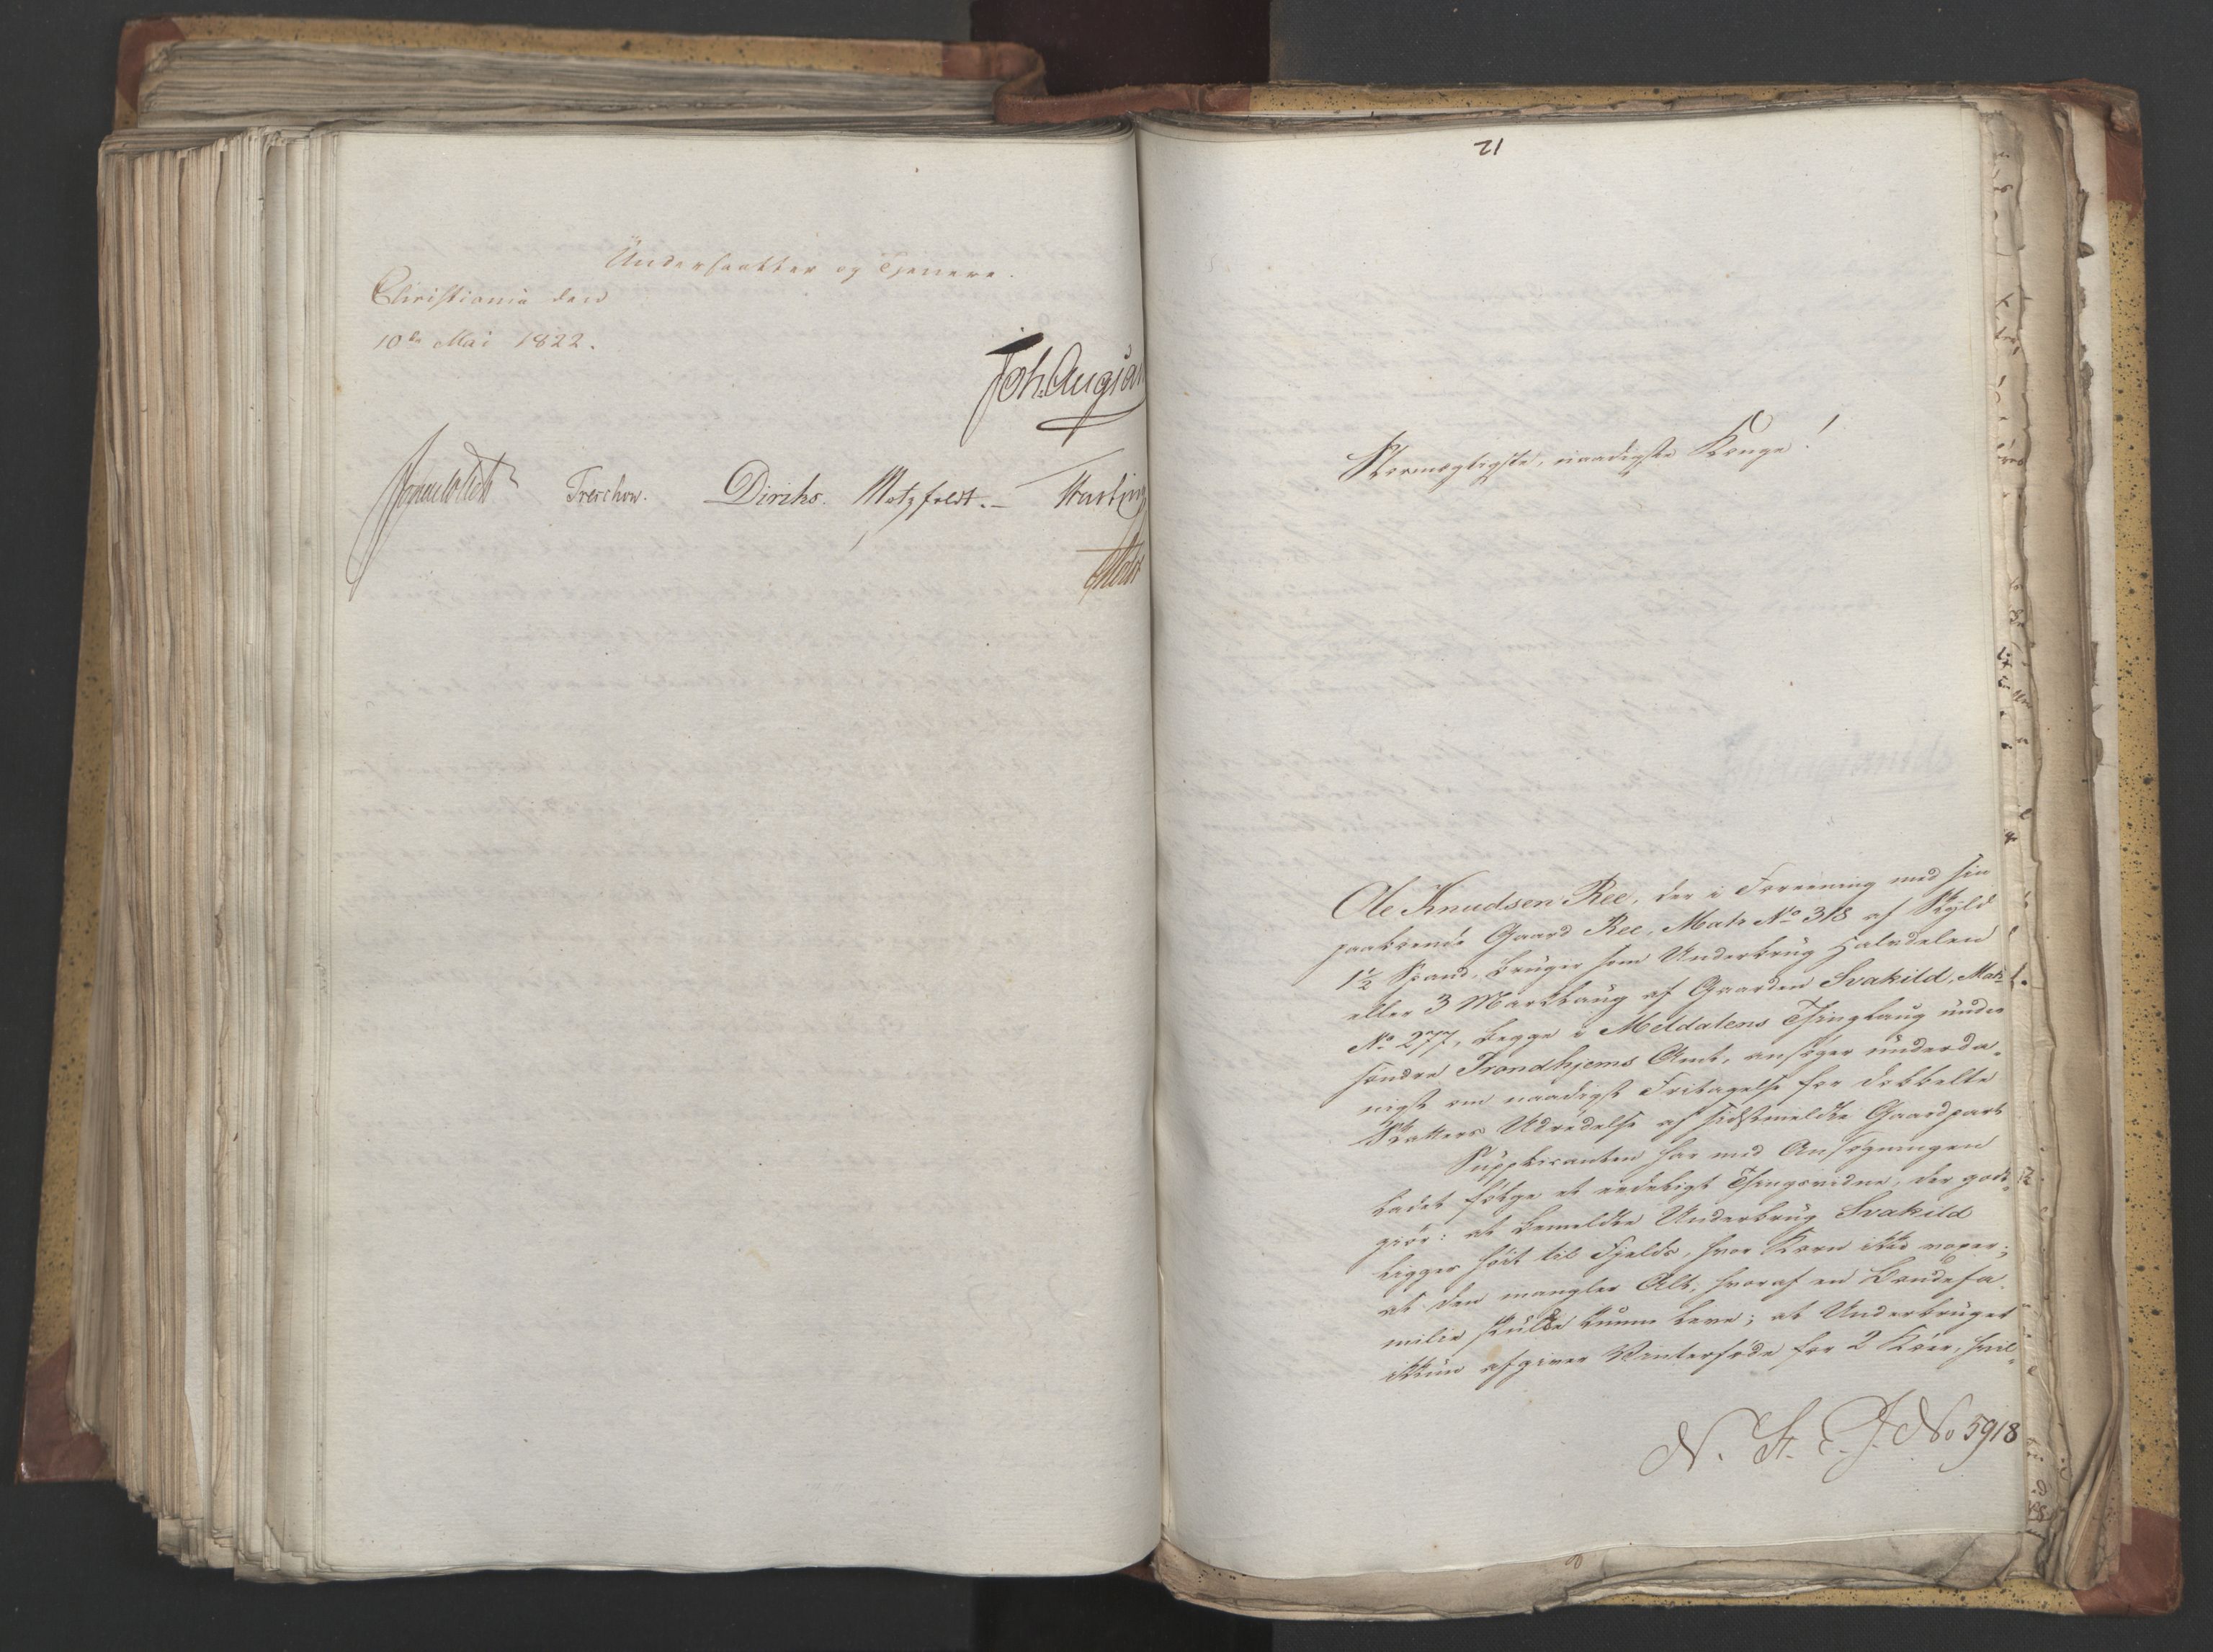 Undersaatter og Tjenere.
Christiania den
10de Mai 1822.
Joh. Aug: San
Treschow. Diriks. Motzfeldt.
21
Stormægtigste, naadigste Konge!
Ole Knudsen Ree, der i Foreening med sin
paaboende Gaard Ree, Matr No 318 af Skyld
1½ Spand, bruger som Underbrug Halvdelen
eller 3 Marklaug af Gaarden Svakild, Matr
No 277, begge i Meldalens Thinglaug under
søndre Trondhjems Amt, ansøger underda-
nigst om naadigst Fritagelse for dobbelte
Skatters Udredelse af sidstmeldte Gaardpart
Supplicanten har med Ansøgningen
ladet følge et eedeligt Thingsvidne, der godt-
giør: at bemeldte Underbrug Svakild
ligger høit til Fjelds, hvor Korn ikke voxer;
at den mangler Alt, hvoraf en Bondefa-
milie skulde kunne leve; at Underbruget
ikkun afgiver Vinterføde for 2 Køer, hvil-
N. St. C. J. No 5918